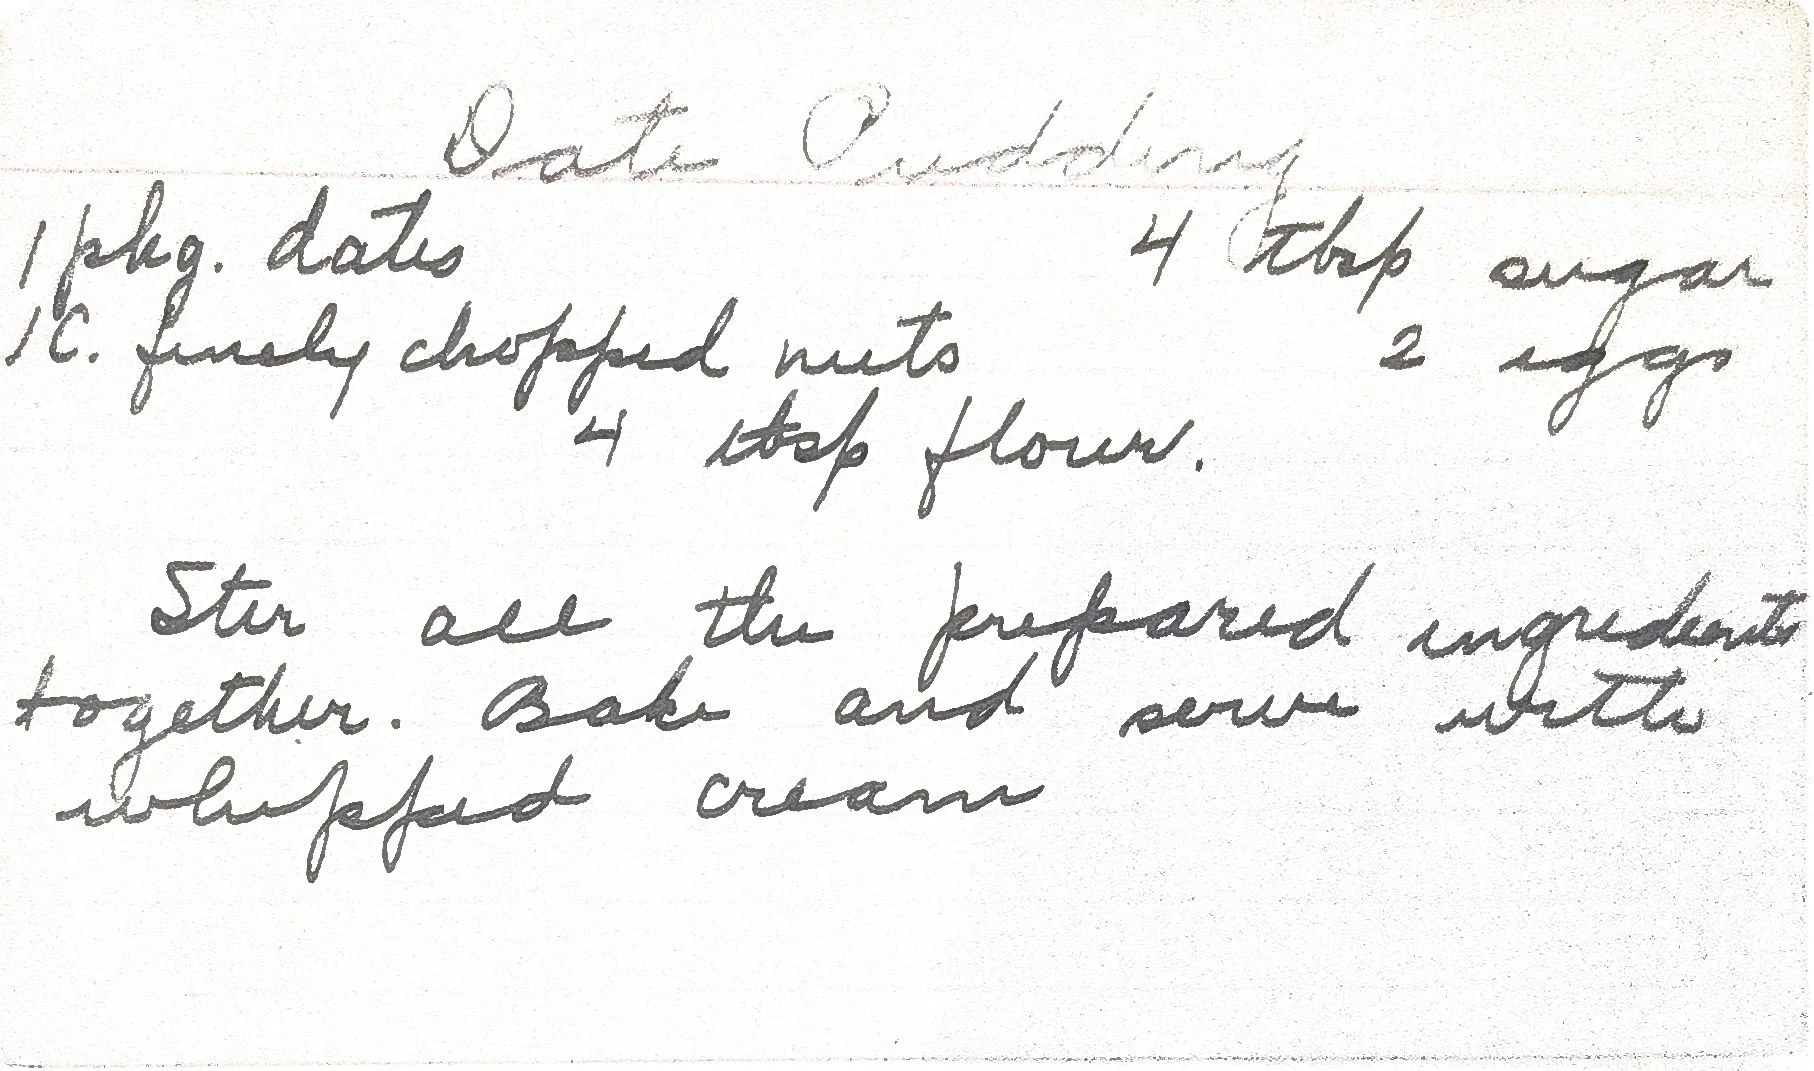 Date Pudding
1 pkg. dates 4 tbsp sugar
1 C. finely chopped nuts 2 eggs
4 tbsp flour.
Stir all the prepared ingredients
together. Bake and serve with
whipped cream